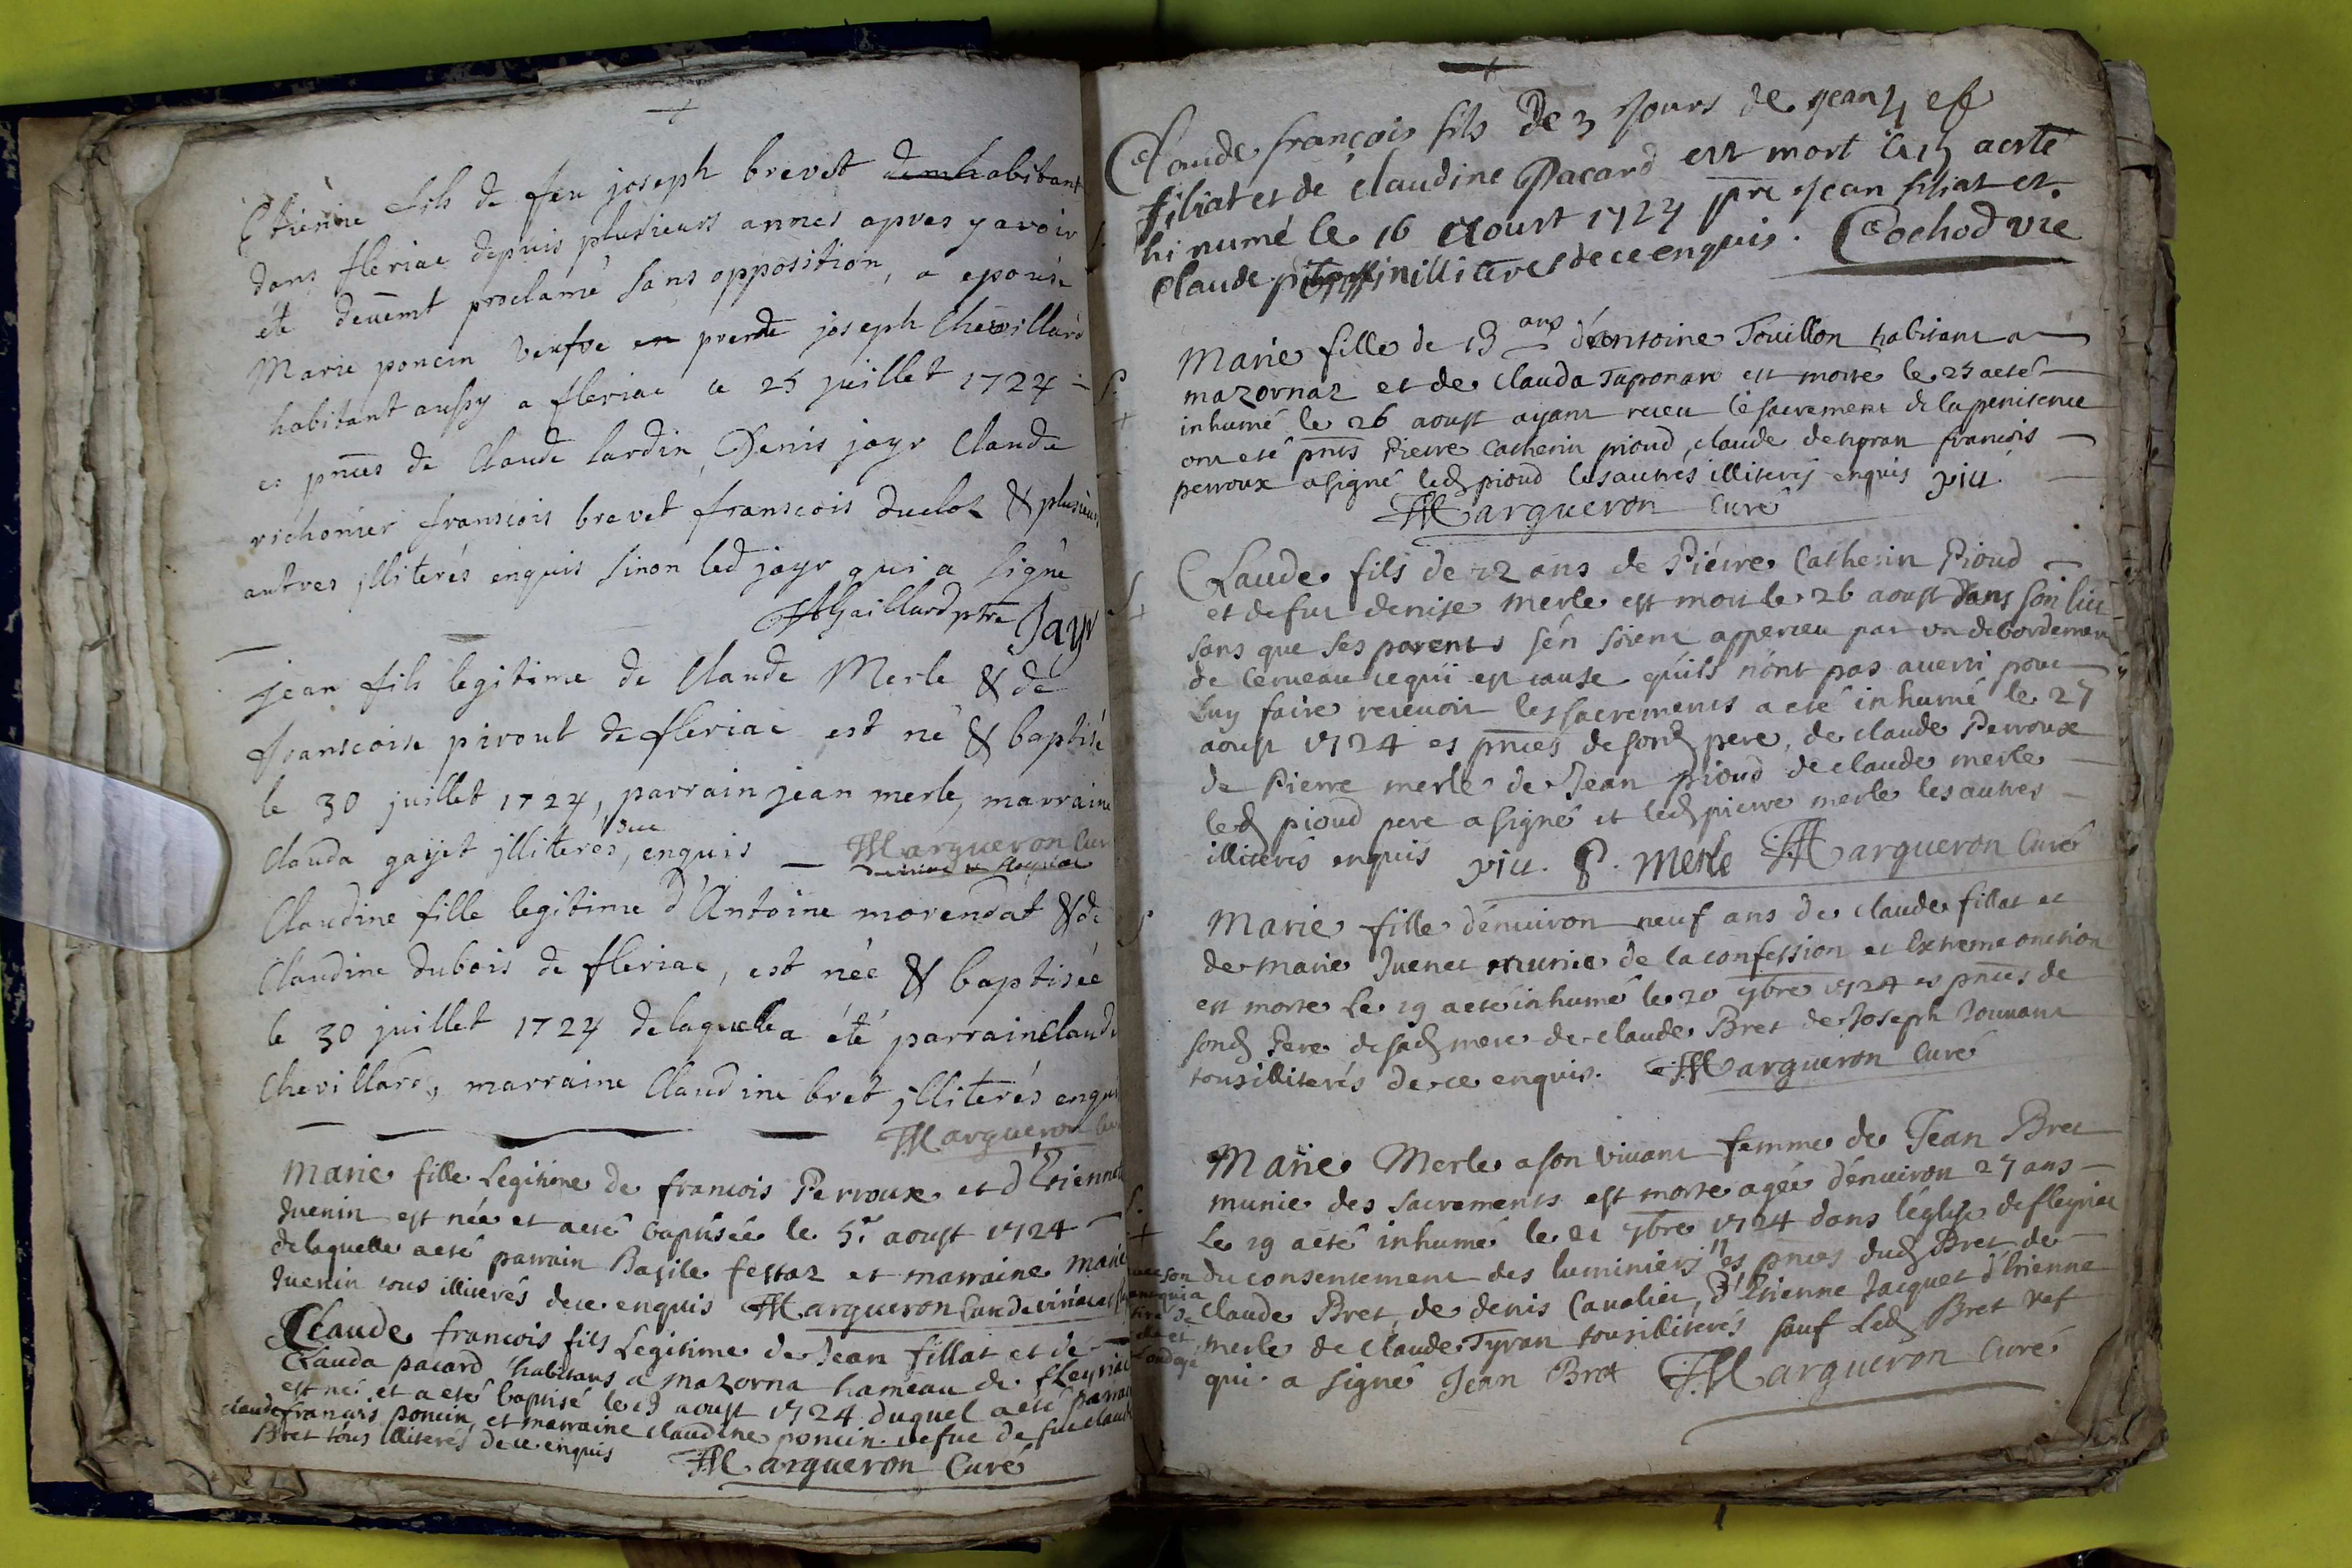 Etienne fils de feu joseph brevet demhabitant
dans fleriac depuis plusieurs annes apres y avoir
été deuemt proclamé sans opposition, a epousé
Marie poncin veufve en pre joseph Chevillard
habitant aussy a fleriac ce 25 juillet 1724
es pnces de Claude lardin, Denis jayr Claude
richonier franscois brevet franscois duclos & plusieurs
autres jlliterés enquis sinon led jayr qui a signé
Gaillard ptre Jayr
jean fils legitime de Claude Merle & de
franscoise pirout de fleriac est né & baptisé
le 30 juillet 1724, parrain jean merle, marraine
Clauda gayet jlliterés, enquis Margueron Cur
Claudine fille legitime d'Antoine morendat & de
Claudine dubois de fleriac, est née & baptisée
le 30 juillet 1724 delaquelle a été parrain Claude
Chevillard, marraine Claudine bret jlliterés enqu
Margueron
Marie fille Legitime de francois Perroux et d'Etienne
Juenin est née et a eté baptisée le 5e aoust 1724
delaquelle a eté parrain Basile ferraz et marraine Marie
Juenin tous illiterés de ce enquis Margueron Curé de viriac et
Claude francois fils Legitime de Jean fillat et de
Clauda pacard habitans a Mazorna hameau de fleyriac
est né et a eté baptisé le 13 aoust 1724 duquel a eté parrain
claude francois poncin et marraine claudine poncin vefue de fut claude
Bret tous illiterés de ce enquis
Margueron Curé
Claude françois fils De 3 Jours de jean
filiat et de claudine Pacard est mort le 15 a esté
hi numé le 16 Aoust 1724 pre Jean filiat et
Claude illiteres de ce enquis. Cochod vre
Marie fille de 13 ans d'Antoine Touillon habitant a
mazornaz et de Clauda Taponar est morte le 25 a eté
inhumé le 26 aoust ayant receu le sacrement de la penitence
ont eté pnts Pierre Catherin pioud, claude desgran francois
perroux a signé led pioud les autres illiterés enquis piu.
Margueron Curé
Claude fils de 22 ans de Pierre Catherin Pioud
et de fut denise Merle est mort le 26 aoust Dans son lict
sans que ses parents s'en soient apperceu par un debordement
de cerueau ce qui est cause qu'ils n'ont pas auerti pour
Luy faire receuoir les sacrements a eté inhumé le 27
aoust 1724 es pnces de sond pere, de claude Perroux
de Pierre merle de Jean pioud de claude merle
led pioud pere a signé et led pierre merle les autres
illiterés enquis piu. P. Merle Margueron Curé
Marie fille d'enuiron neuf ans de claude fillat et
de marie Juenet munie de la confession et Extreme onction
est morte Le 19 a eté inhumé le 20 7bre 1724 es pnces de
sond Pere de sad mere de claude Bret de Joseph Jouuant
tous illiterés de ce enquis. Margueron Curé
Marie Merle a son viuant femme de Jean Bret
munie des sacrements est morte agée d'enuiron 27 ans
Le 19 a eté inhumé le 21 7bre 1724 dans l'église de fleyriac
du consentement des luminiers es pnces dud Bret de
claude Bret, de denis Caualier, d'Etienne Jacquet d'Etienne
merle de claude Tyran tous illiterés sauf Led Bret vef
qui a signé Jean Bret Margueron Curé